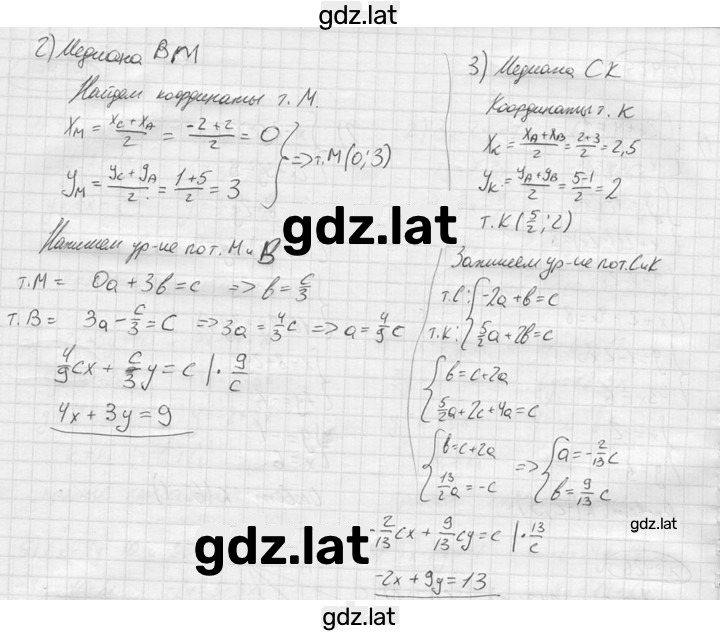 gdz.lat
2) Медиана BM
Найдем координаты т. M.
x_M = (x_C + x_A)/2 = (-2+2)/2 = 0
y_M = (y_C + y_A)/2 = (1+5)/2 = 3 } => т. M (0; 3)
gdz.lat
Напишем ур-ие по т. M и B
т. M = 0a + 3b = c => b = c/3
т. B = 3a - c/3 = c => 3a = 4/3 c => a = 4/9 c
4/9 cx + c/3 y = c | · 9/c
4x + 3y = 9
3) Медиана CK
Координаты т. K
x_K = (x_A + x_B)/2 = (2+3)/2 = 2,5
y_K = (y_A + y_B)/2 = (5-1)/2 = 2
т. K (5/2; 2)
Запишем ур-ие по т. C и K
т. C: { -2a + b = c
т. K: { 5/2 a + 2b = c
{ b = c + 2a
{ 5/2 a + 2c + 4a = c
{ b = c + 2a
{ 13/2 a = -c
=> { a = -2/13 c
{ b = 9/13 c
gdz.lat
gdz.lat
-2/13 cx + 9/13 cy = c | · 13/c
-2x + 9y = 13
gdz.lat